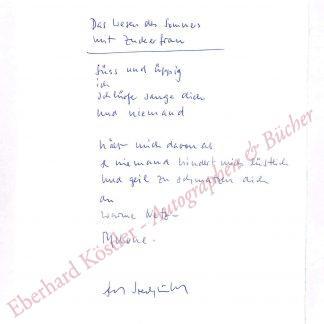 Das Wesen des Sommers
mit Zuckerfrau
süss und üppig
ich
schlürfe sauge dich
und niemand
hält mich davon ab
niemand hindert mich
und geil zu schmatzen dich
an
warme
Melone.
Eberhard Köstler - Autographen & Bücher